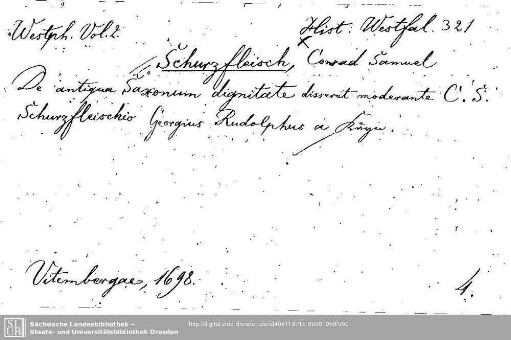 Westph. Vol. 2. Hist. Westfal. 321
Schurzfleisch, Conrad Samuel
De antiqua Saxonum dignitate disserat moderante C. S.
Schurzfleischio Georgius Rudolphus a
Vitembergae, 1698. 4.
SLUB Sächsische Landesbibliothek –
Staats- und Universitätsbibliothek Dresden